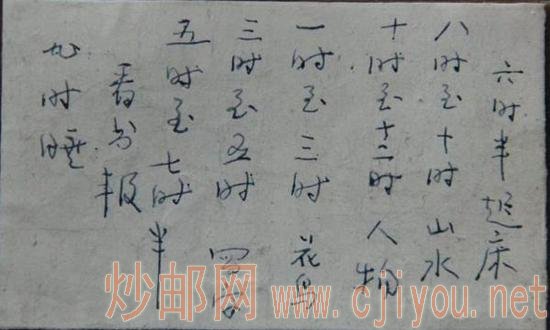 六时半起床
八时至十时 山水
十时至十二时 人物
一时至三时 花鸟
三时至五时 写字
五时至七时半
看书报
九时睡
炒邮网 www.cjiyou.net